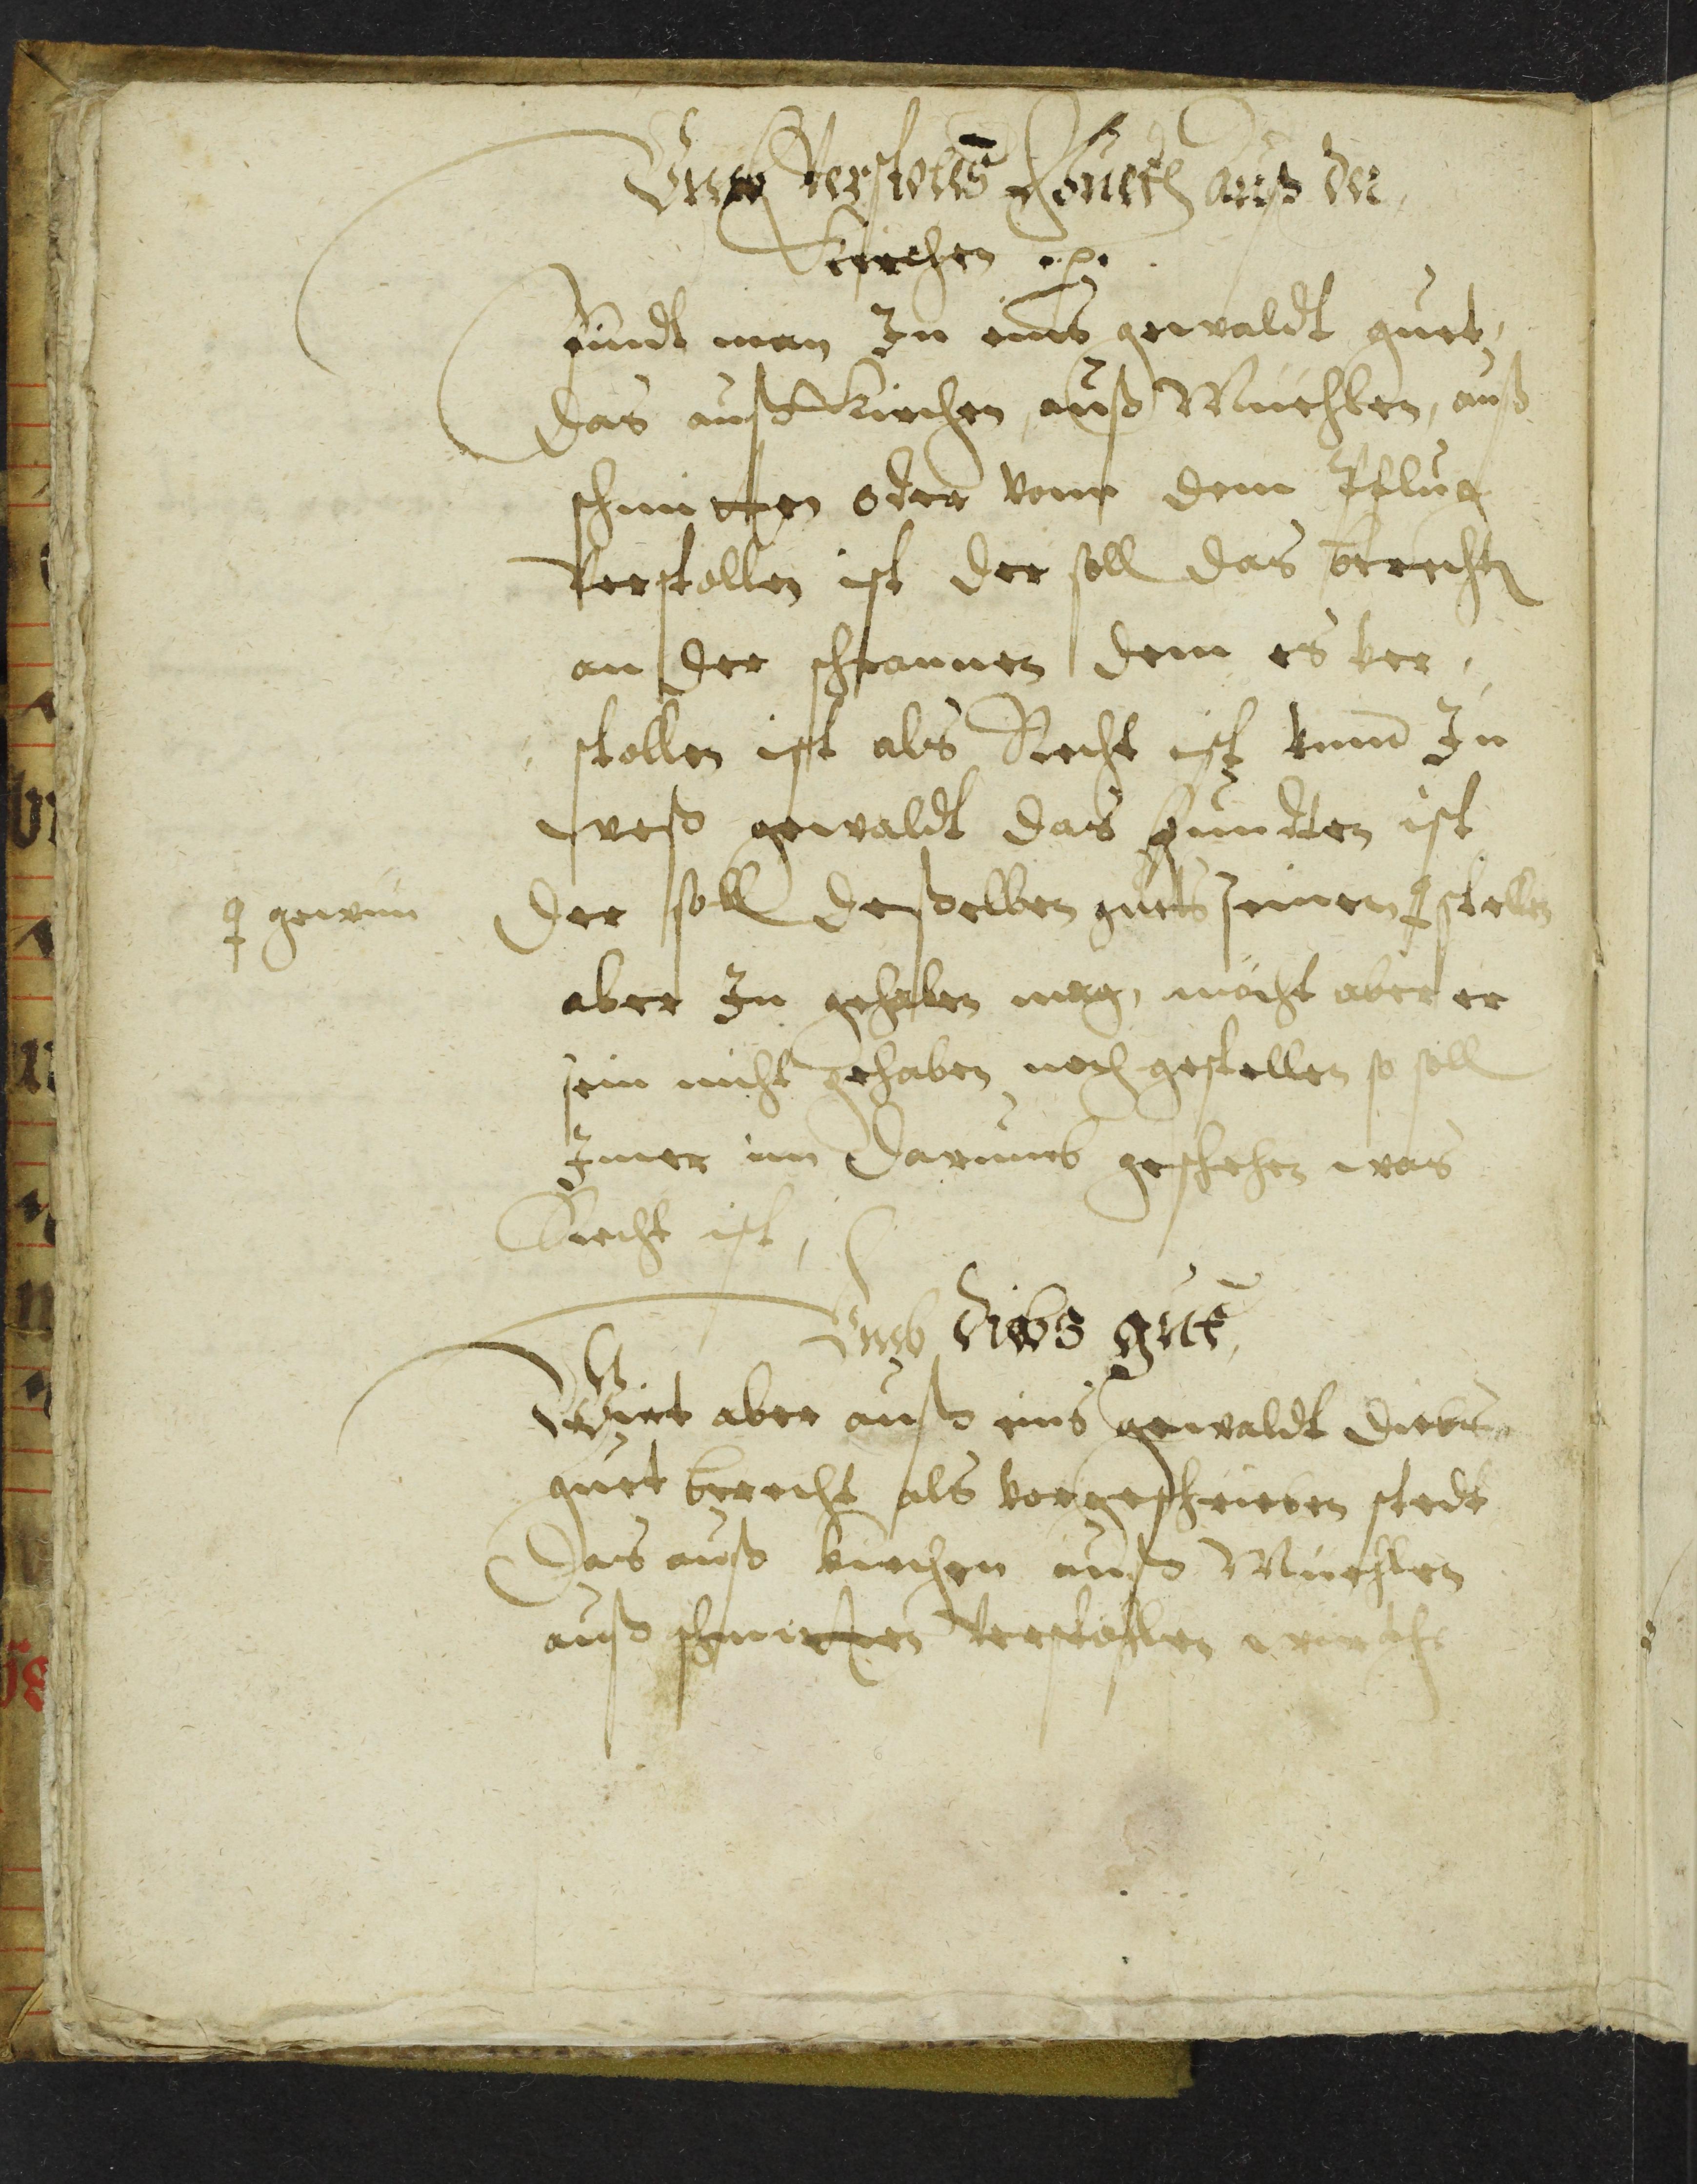 Vmb verstolen Gueth auß der
Kirchen :p:
Findt man In eins gewaldt guet,
das auß Kirchen, auß Muehlen, auß
schmitten oder vonn dem Pflueg
verstollen ist der soll das berecht
an der schrannen dem es ver,
stollen ist als Recht ist vnnd In
weß gewaldt das funden ist
der soll deßelben guets seinen stellen
gewern
aber In gehaben mag, möcht aber er
sein nicht gehaben noch gestellen so soll
Imer im darumb geschehen was
Recht ist,
Vmb diebs guet,
Wirt aber auß eins gewaldt diebs
guet berecht als vorgeschrieben stedt
Das auß kirchen auß Muehlen
auß schmitten verstohlen